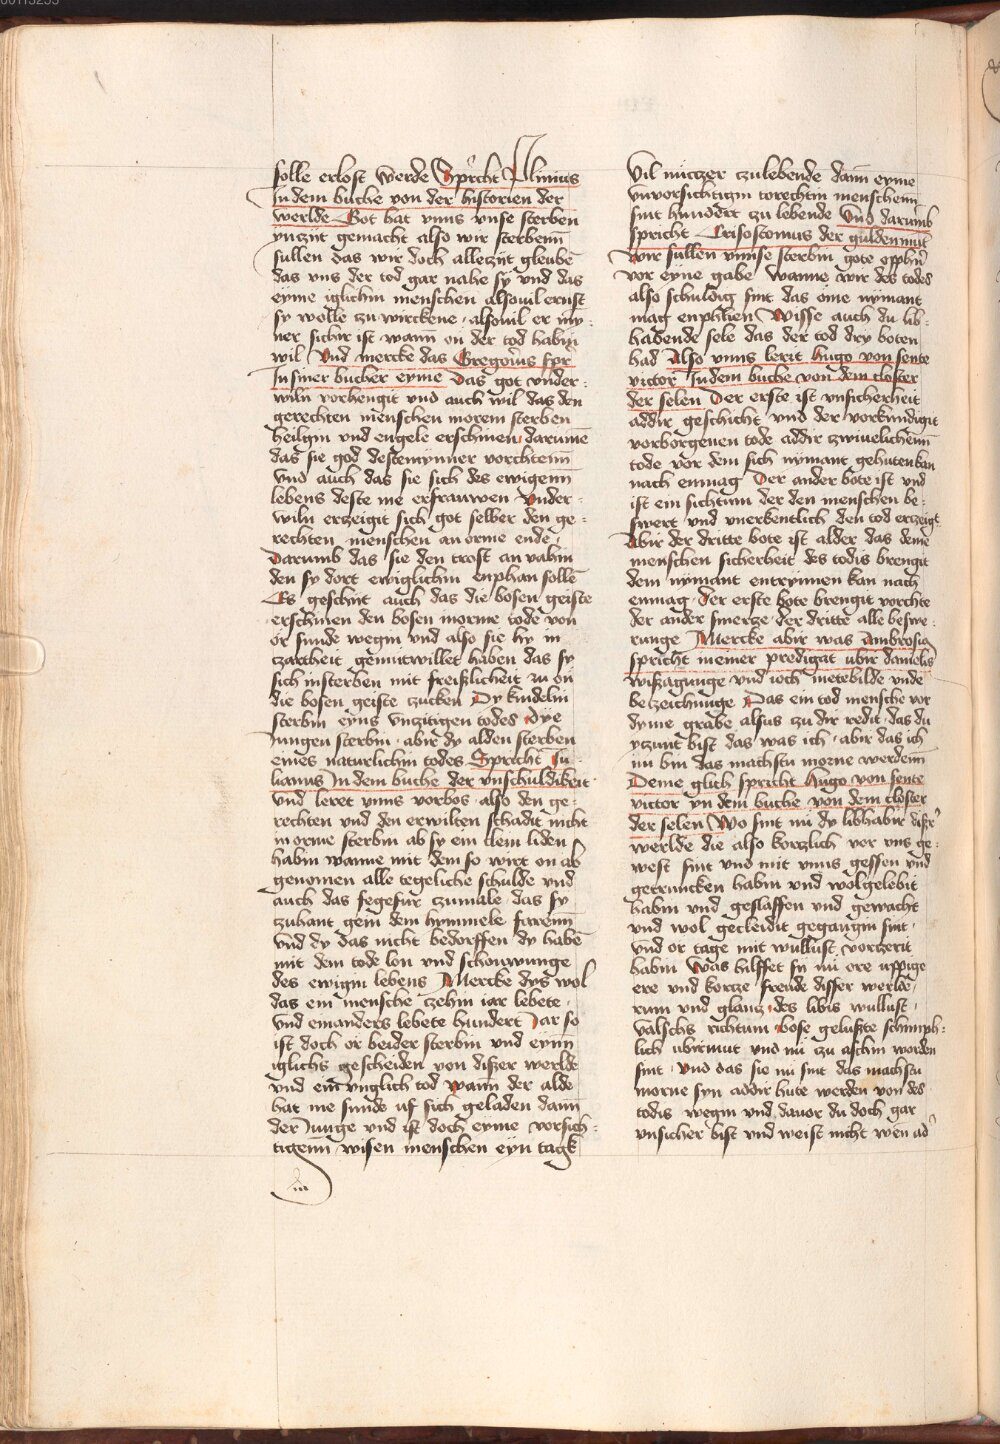 solle erlost werde Spricht Plinius
In dem buche von der historien der
werlde Got hat vnns vnse sterben
vnczijt gemacht also wir sterbenn
sullen das wir doch alleczijt gleuben
das vns der tod gar nahe sy vnd das
eyme iglichin menschen alsouil ernst
sy wolle zu wirckene alsouil er my-
ner sichir ist wann en der tod habin
wil Vnd mercke das Gregorius spr
In siner bucher eyme Das got vnder-
wiln vorhengit vnd auch wil das den
gerechten menschen in orem sterben
heilgin vnd engele erschinen darumme
das sie god destemynner vorchtenn
Vnd auch das sie sich des ewigenn
lebens deste me erfrauwen Vnder-
wiln erzeigit sich got selber den ge-
rechten menschen an orme ende
Darumb das sie den trost an vahin
den sy dort ewiglichin enphan sollē
Es geschyt auch das die bosen geiste
erschinen den bosen in orme tode von
or sunde wegin vnd also sie hy in
czartheit gemutwillet haben das sy
sich in sterben mit freißlicheit zu en
die bosen geiste zucken Dy kindelin
sterbin eyns vnzitigen todes Dye
Jungen sterbin abir dy alden sterben
eines naturlichin todes Spricht Ju-
lianus In dem buche der vnschuldikeit
Vnd leret vnns vorbos also den ge-
rechten vnd den erwilten schadit nicht
in orme sterbin ab sy ein clein liden
habin wanne mit dem so wirt on ab
genomen alle tegeliche schulde vnd
auch das fegefur zumale das sy
zuhant gein dem hymmele farenn
Vnd dy das nicht bedorffen dy habē
mit dem tode lon vnd schouwunge
des ewigin lebens Mercke dys wol
das ein mensche zehin iar lebete
Vnd einanders lebete hundert Jar so
ist doch or beider sterbin vnd eynn
iglichs gescheiden von dißer werlde
vnd ein ynglich tod wann der alde
hat me sunde uf sich geladen dann
der Junge vnd ist doch eyme vorsich-
tigenn wisen menschen eyn tagk
Vil nuczer zulebende dann eyme
vnvorsichtigin torechtin menschenn
sint hundert zu lebende Vnd darumb
spricht Crisostomus der guldenmut
wir sullen vnnse sterbin gote opphir
vor eyne gabe wanne wir des todes
also schuldig sint das ome nymant
mag enphlien Wisse auch du lib-
habende sele das der tod dry boten
had Also vnns lerit Hugo von sente
victor In dem buche von dem closter
der selen Der erste ist vnsicherheit
addir geschicht vnd der vorkundigit
vorborgenen tode addir zwiuelichenn
tode vor dem sich nymant gehuten kan
nach enmag Der ander bote ist vnd
ist ein sichtum der den menschen be-
swert vnd vnerkentlich den tod erzeigt
Abir der dritte bote ist alder das deme
menschen sicherheit des todis brengit
dem nymant entrynnen kan nach
enmag Der erste bote brengit vorchte
der ander smerze der dritte alle beswe-
runge Mercke abir was Ambrosiu
spricht in einer predigat vbir danielis
wißagunge vnd ioch metebilde vnde
beczeichnuge Das ein tod mensche vor
dyme grabe alsus zu dir redit das du
yczunt bist das was ich abir das ich
nu bin das machstu morne werdenn
Deme glich spricht Hugo von sente
victor yn dem buche von dem closter
der selen Wo sint nu dy libhabir disir
werlde die also korczlich vor vns ge-
west sint vnd mit vnns gessen vnd
getruncken habin vnd wolgelebit
habin vnd geslaffen vnd gewacht
vnd wol gecleidit gegangin sint
vnd or tage mit wullust vorczerit
habin Was hilffet sy nu ore uppige
ere vnd korcze freude disser werlde
rum vnd glanz des libis wullust
valschs richtum bose gelußte schimph-
lich ubirmut vnd nu zu aschin worden
sint vnd das sie nu sint das machstu
morne syn addir hute werden von des
todis wegin vnd dauor du doch gar
vnsicher bist vnd weist nicht wen ad